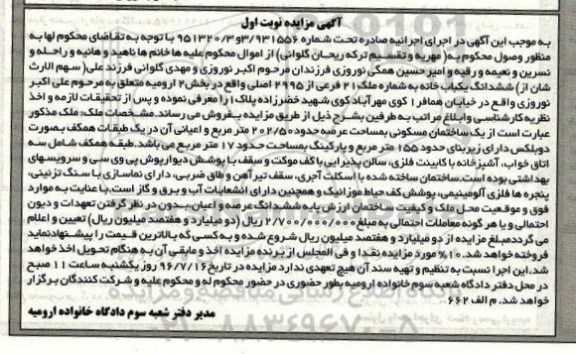 آگهی مزایده نوبت اول
به موجب این آگهی در اجرای اجرائیه صادره تحت شماره ۳/۹۳۱۵۵۶و۹۵۱۳۲۰/۳ با توجه به تقاضای محکوم لها به
منظور وصول محکوم به( مهریه و تقسیم ترکه ریحان گلوانی) از اموال محکوم علیه ها خانم ها ناهید و هانیه و راحله و
نسرین و نعیمه و رقیه و امیر حسین همگی نوروزی فرزندان مرحوم اکبر نوروزی و مهدی گلوانی فرزند علی( سهم الارث
شان از) ششدانگ یکباب خانه به شماره ملک۲۱ فرعی از ۲۹۹۵ اصلی واقع در بخش۲ ارومیه متعلق به مرحوم علی اکبر
نوروزی واقع در خیابان همافر۱ کوی مهرآباد کوی شهید خضرزاده پلاک۱را معرفی نموده و پس از تحقیقات لازمه و اخذ
نظریه کارشناسی وابلاغ مراتب به طرفین بشرح ذیل از طریق مزایده بفروش می رساند.مشخصات ملک: ملک مذکور
عبارت است از یک ساختمان مسکونی بمساحت عرصه حدود ۲۰۲/۵۰ متر مربع و اعیانی آن در یک طبقات همکف بصورت
دوبلکس دارای زیربنای حدود ۱۵۵ متر مربع و پارکینگ بمساحت حدود ۱۷ متر مربع می باشد.طبقه همکف شامل سه
اتاق خواب، آشپزخانه با کابینت فلزی، سالن پذیرایی با کف موکت و سقف با پوشش دیوارپوش پی وی سی و سرویسهای
بهداشتی بوده است.ساختمان ساخته شده با اسکلت آجری، سقف تیرآهن و طاق ضربی، دارای نماسازی با سنگ تزئینی،
پنجره ها فلزی آلومینیمی، پوشش کف حیاط موزائیک و همچنین دارای انشعابات آب و برق و گاز است.با عنایت به موارد
فوق و موقعیت محل ملک و کیفیت ساختمان ارزش پایه ششدانگ عرصه و اعیان بدون در نظر گرفتن تعهدات و دیون
احتمالی و یا هر گونه معاملات احتمالی به مبلغ ۲/۷۰۰/۰۰۰/۰۰۰ ریال (دو میلیارد و هفتصد میلیون ریال) تعیین و اعلام
می گرددمبلغ مزایده از دو میلیارد و هفتصد میلیون ریال شروع شده و به کسی که بالاترین قیمت را پیشنهاد نماید
فروخته خواهد شد. ۱۰% مورد مزایده نقدا و فی المجلس از برنده مزایده اخذ و مابقی آن به هنگام تحویل اخذ خواهد
شد.این اجرا نسبت به تنظیم و تهیه سند آن هیچ تعهدی ندارد مزایده در تاریخ ۹۶/۷/۱۶ روز یکشنبه ساعت ۱۱ صبح
در محل دفتر دادگاه شعبه سوم خانواده ارومیه بطور حضوری در حضور محکوم له و محکوم علیه و شرکت کنندگان برگزار
خواهد شد. م الف ۶۶۲
مدیر دفتر شعبه سوم دادگاه خانواده ارومیه